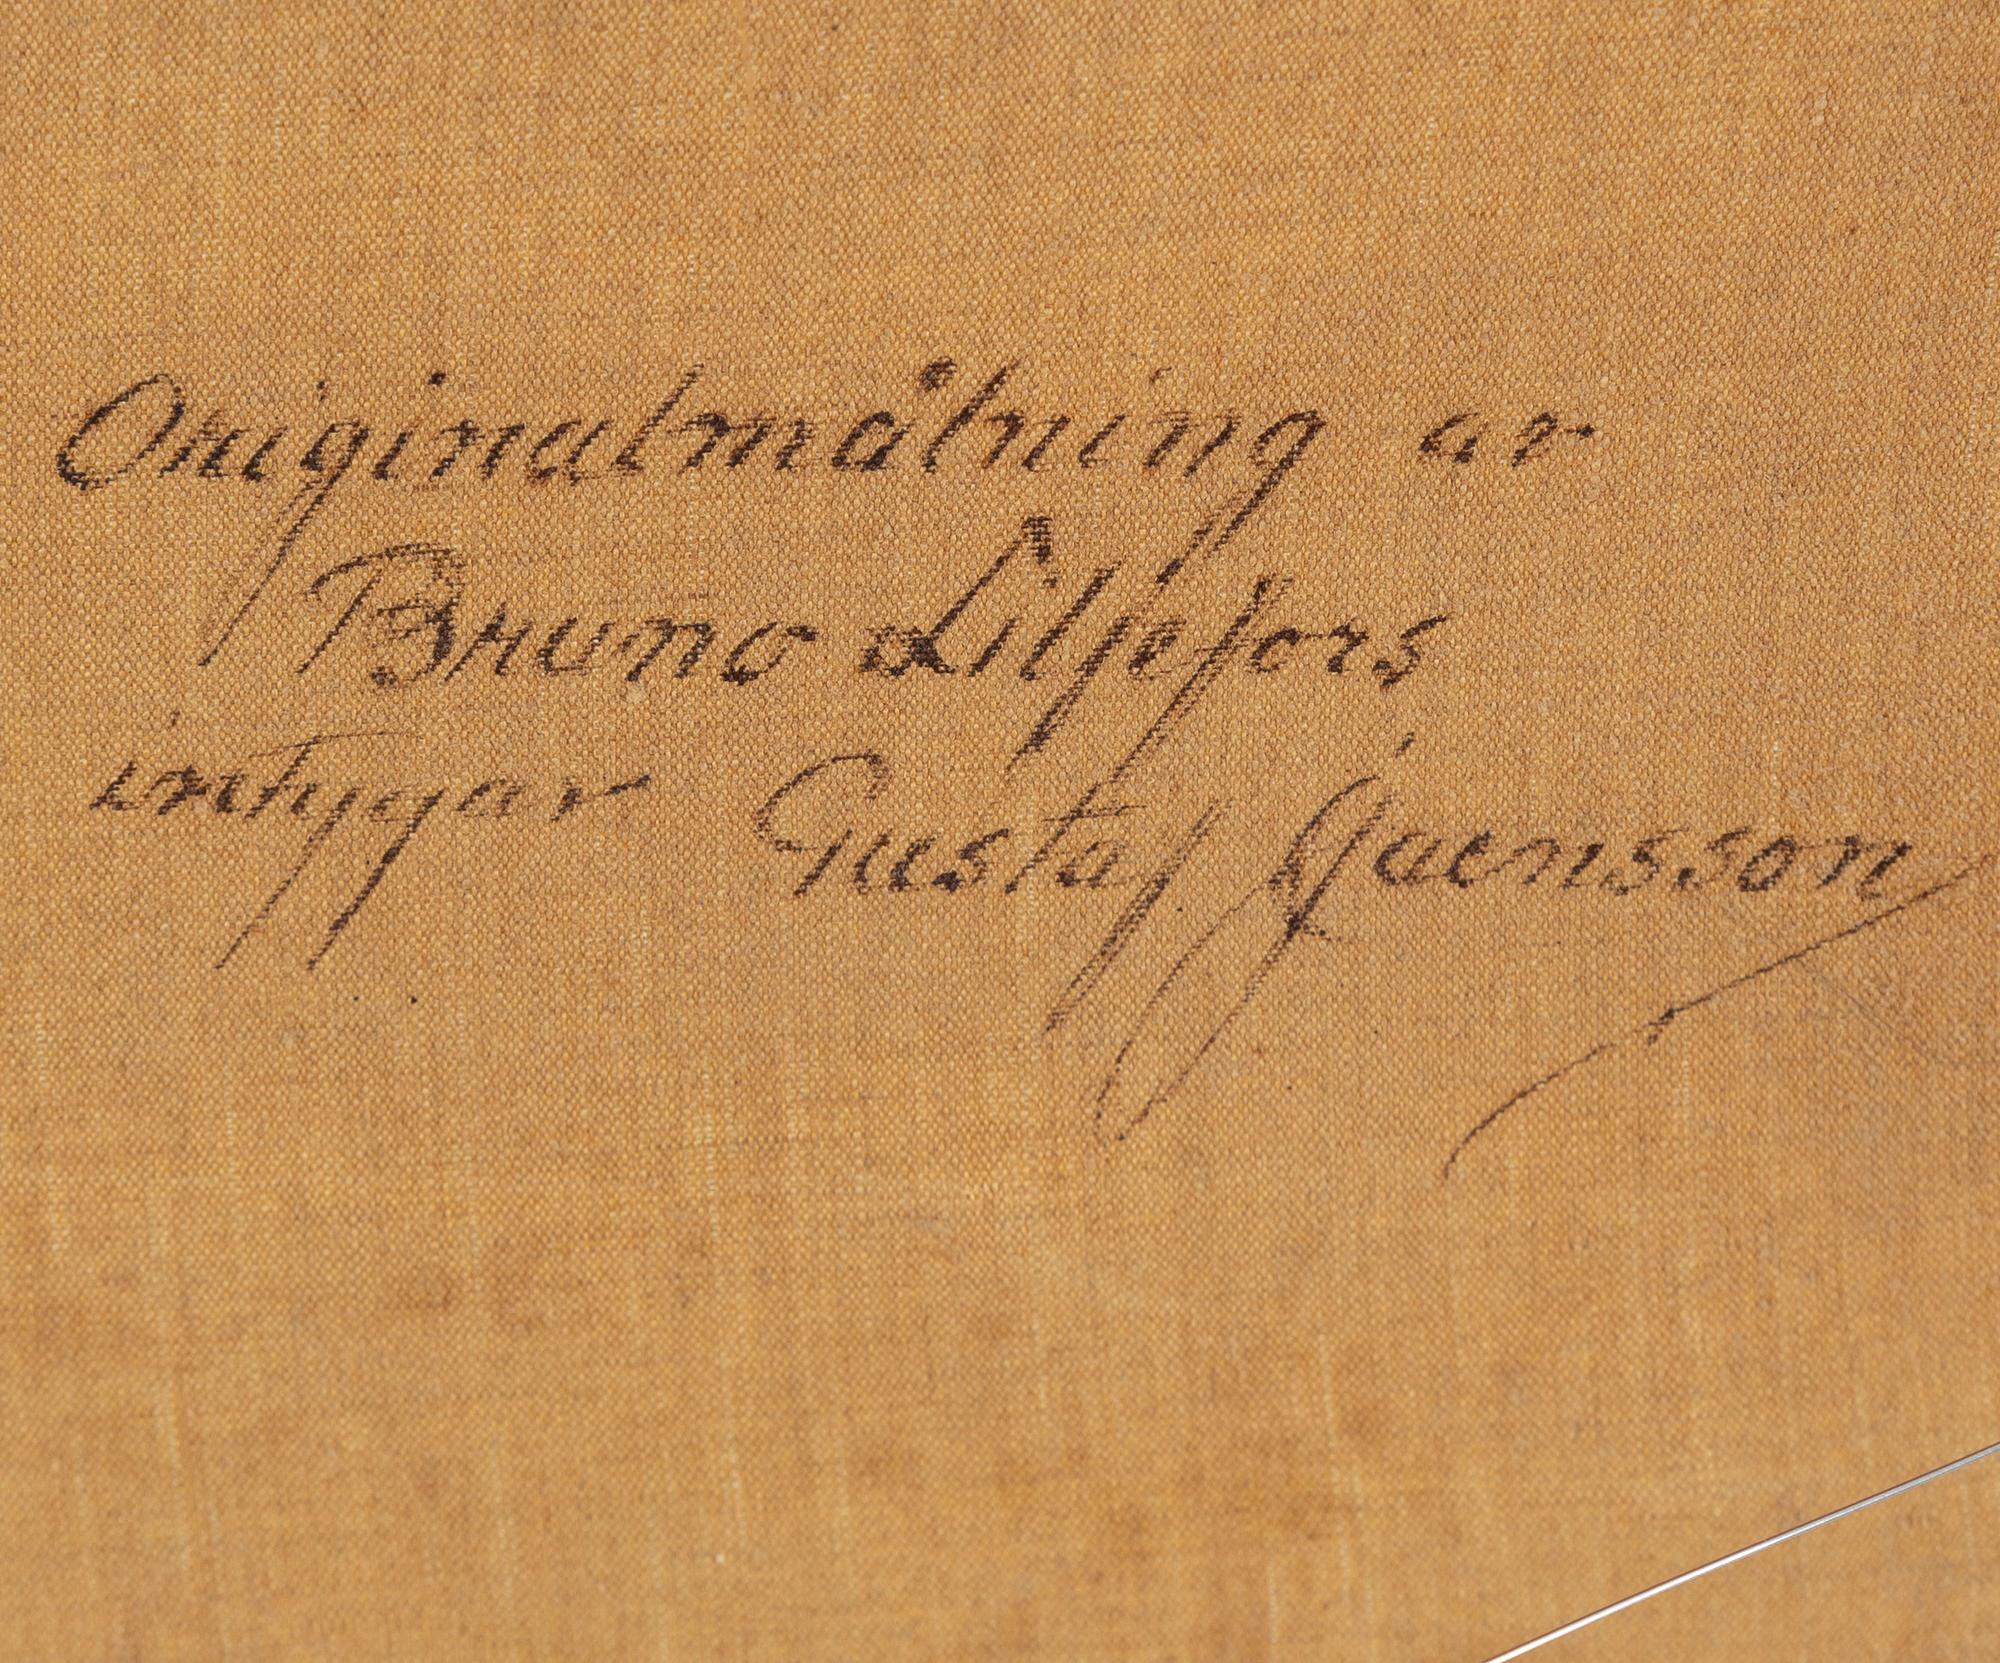 Originalmålning av
Bruno Liljefors
intygar Gustaf Jaensson